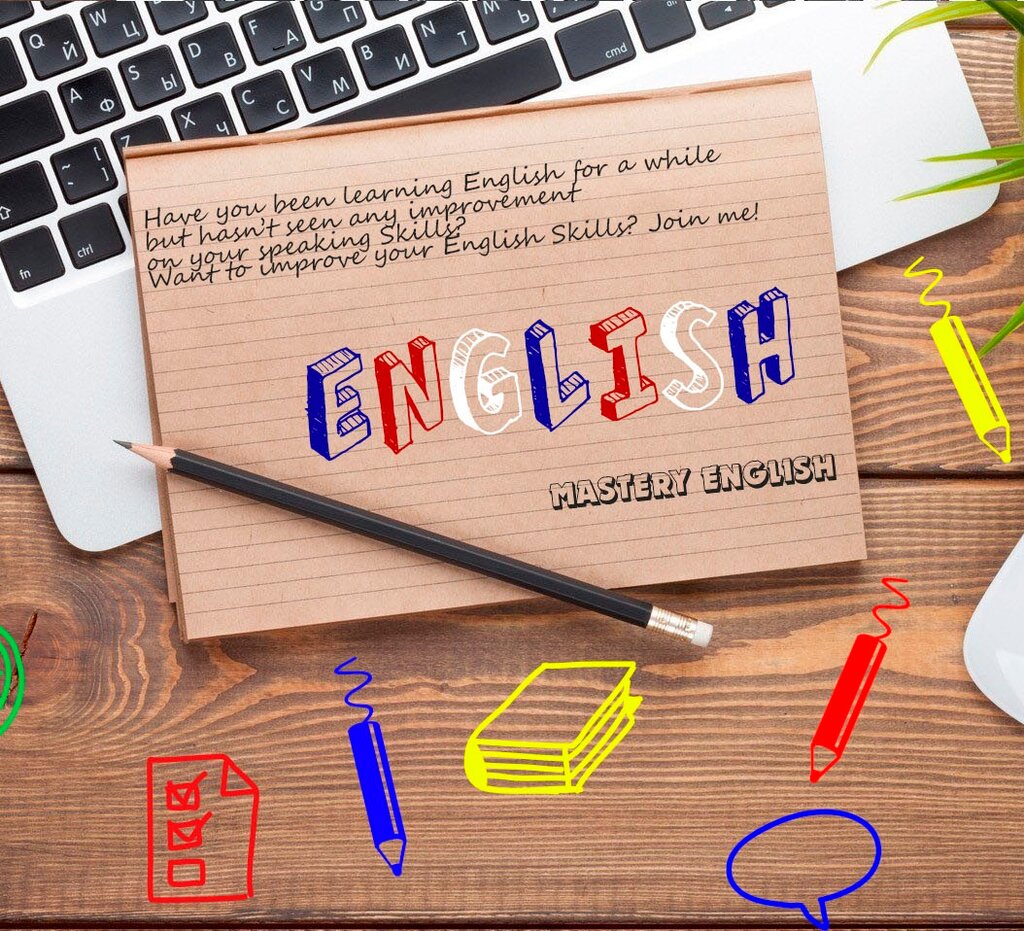 Q Й W Ц E У R К G П M Ь
A Ф S Ы D В F А V М B И N Т alt
Z X Ч C С cmd
~ ` ] [
ctrl
fn
Have you been learning English for a while
but hasn't seen any improvement
on your speaking Skills?
Want to improve your English Skills? Join me!
ENGLISH
MASTERY ENGLISH